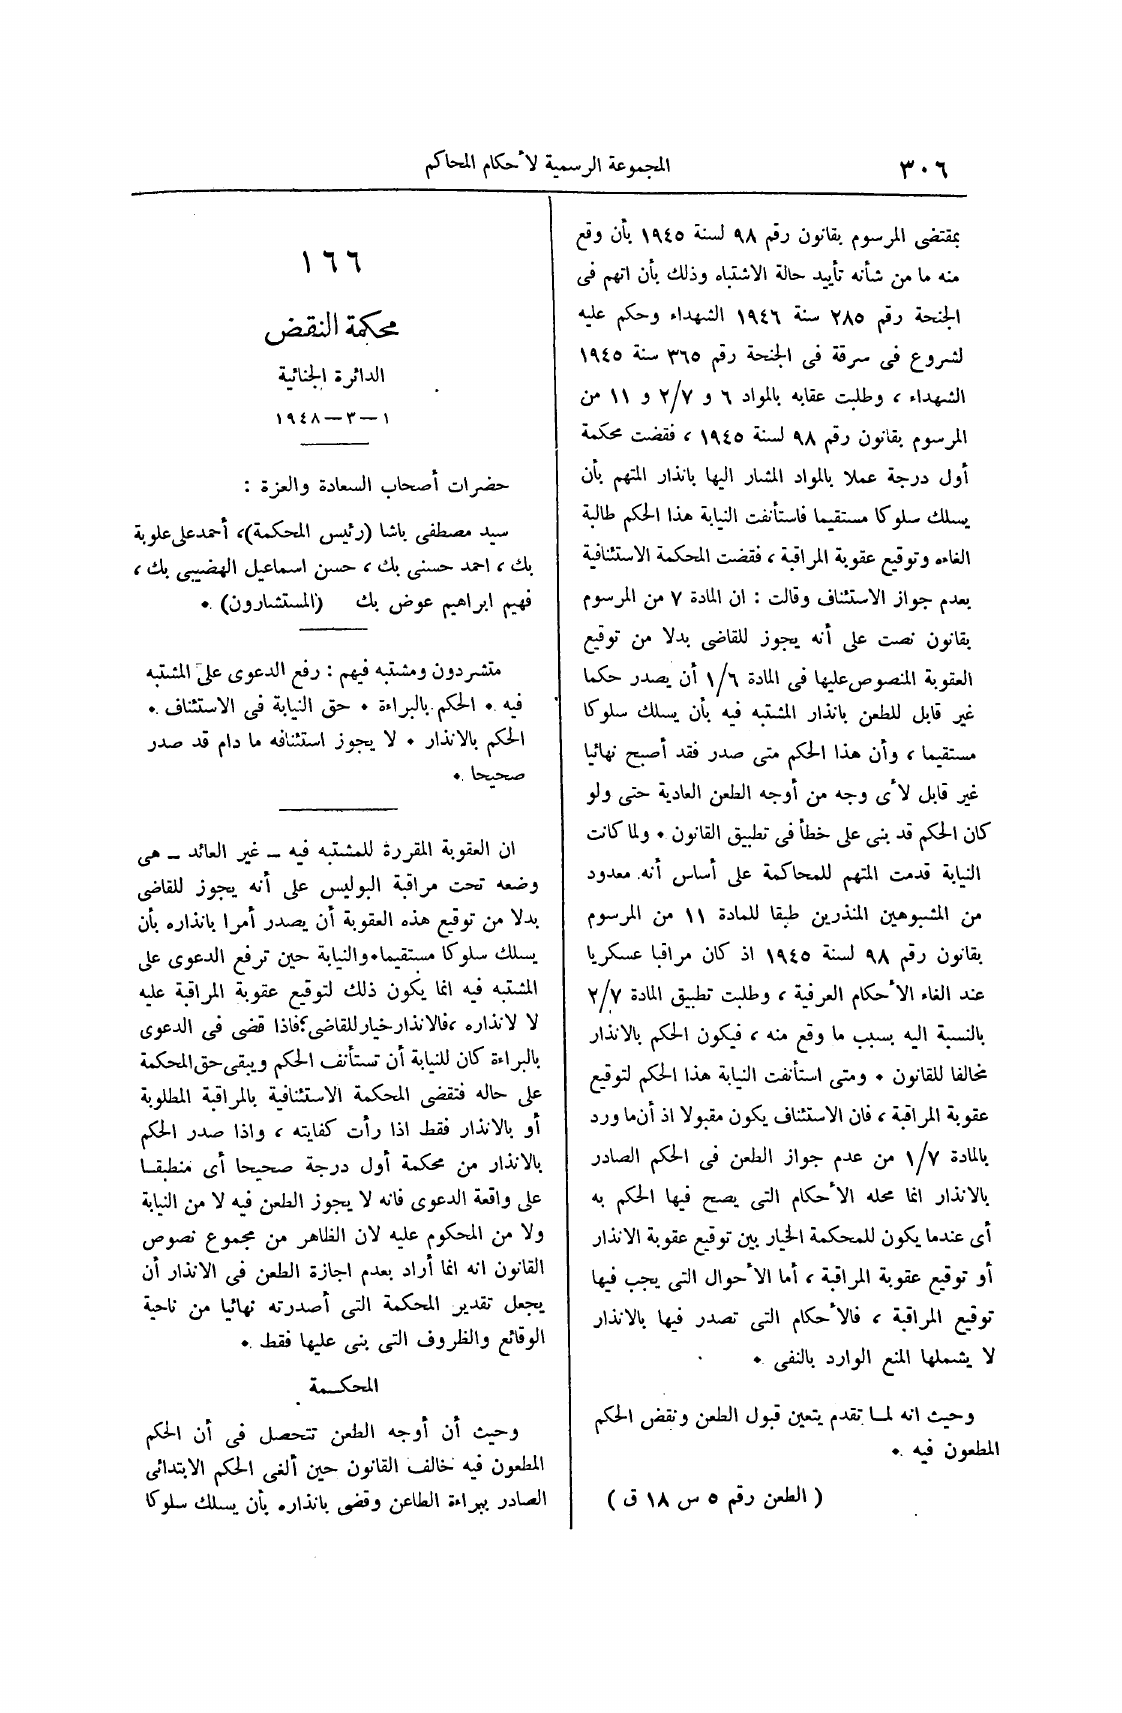 ٣٠٦
المجموعة الرسمية لأحكام المحاكم
بمقتضى المرسوم بقانون رقم ٩٨ لسنة ١٩٤٥ بأن وقع
منه ما من شأنه تأييد حالة الاشتباه وذلك بأن اتهم فى
الجنحة رقم ٢٨٥ سنة ١٩٤٦ الشهداء وحكم عليه
لشروع فى سرقة فى الجنحة رقم ٣٦٥ سنة ١٩٤٥
الشهداء ، وطلبت عقابه بالمواد ٦ و ٢/٧ و ١١ من
المرسوم بقانون رقم ٩٨ لسنة ١٩٤٥ ، فقضت محكمة
أول درجة عملا بالمواد المشار اليها بانذار المتهم بأن
يسلك سلوكا مستقيما فاستأنفت النيابة هذا الحكم طالبة
الغاءه وتوقيع عقوبة المراقبة ، فقضت المحكمة الاستئنافية
بعدم جواز الاستئناف وقالت : ان المادة ٧ من المرسوم
بقانون نصت على أنه يجوز للقاضى بدلا من توقيع
العقوبة المنصوص عليها فى المادة ١/٦ أن يصدر حكما
غير قابل للطعن بانذار المشتبه فيه بأن يسلك سلوكا
مستقيما ، وأن هذا الحكم متى صدر فقد أصبح نهائيا
غير قابل لأى وجه من أوجه الطعن العادية حتى ولو
كان الحكم قد بنى على خطأ فى تطبيق القانون ٠ ولما كانت
النيابة قدمت المتهم للمحاكمة على أساس أنه معدود
من المشبوهين المنذرين طبقا للمادة ١١ من المرسوم
بقانون رقم ٩٨ لسنة ١٩٤٥ اذ كان مراقبا عسكريا
عند الغاء الأحكام العرفية ، وطلبت تطبيق المادة ٢/٧
بالنسبة اليه بسبب ما وقع منه ، فيكون الحكم بالانذار
مخالفا للقانون ٠ ومتى استأنفت النيابة هذا الحكم لتوقيع
عقوبة المراقبة ، فان الاستئناف يكون مقبولا اذ أن ما ورد
بالمادة ١/٧ من عدم جواز الطعن فى الحكم الصادر
بالانذار انما محله الأحكام التى يصح فيها الحكم به
أى عندما يكون للمحكمة الخيار بين توقيع عقوبة الانذار
أو توقيع عقوبة المراقبة ، أما الأحوال التى يجب فيها
توقيع المراقبة ، فالأحكام التى تصدر فيها بالانذار
لا يشملها المنع الوارد بالنفى ٠
وحيث انه لما تقدم يتعين قبول الطعن ونقض الحكم
المطعون فيه ٠
( الطعن رقم ٥ س ١٨ ق )
١٦٦
محكمة النقض
الدائرة الجنائية
١ – ٣ – ١٩٤٨
حضرات أصحاب السعادة والعزة :
سيد مصطفى باشا (رئيس المحكمة)، أحمد على علوبة
بك ، احمد حسنى بك ، حسن اسماعيل الهضيبى بك ،
فهيم ابراهيم عوض بك (المستشارون) ٠
متشردون ومشتبه فيهم : رفع الدعوى على المشتبه
فيه ٠ الحكم بالبراءة ٠ حق النيابة فى الاستئناف ٠
الحكم بالانذار ٠ لا يجوز استئنافه ما دام قد صدر
صحيحا ٠
ان العقوبة المقررة للمشتبه فيه – غير العائد – هى
وضعه تحت مراقبة البوليس على أنه يجوز للقاضى
بدلا من توقيع هذه العقوبة أن يصدر أمرا بانذاره بأن
يسلك سلوكا مستقيما٠والنيابة حين ترفع الدعوى على
المشتبه فيه انما يكون ذلك لتوقيع عقوبة المراقبة عليه
لا لانذاره ،فالانذار خيار للقاضى؛فاذا قضى فى الدعوى
بالبراءة كان للنيابة أن تستأنف الحكم ويبقى حق المحكمة
على حاله فتقضى المحكمة الاستئنافية بالمراقبة المطلوبة
أو بالانذار فقط اذا رأت كفايته ، واذا صدر الحكم
بالانذار من محكمة أول درجة صحيحا أى منطبقا
على واقعة الدعوى فانه لا يجوز الطعن فيه لا من النيابة
ولا من المحكوم عليه لان الظاهر من مجموع نصوص
القانون انه انما أراد بعدم اجازة الطعن فى الانذار أن
يجعل تقدير المحكمة التى أصدرته نهائيا من ناحية
الوقائع والظروف التى بنى عليها فقط ٠
المحكمة
وحيث أن أوجه الطعن تتحصل فى أن الحكم
المطعون فيه خالف القانون حين ألغى الحكم الابتدائى
الصادر ببراءة الطاعن وقضى بانذاره بأن يسلك سلوكا